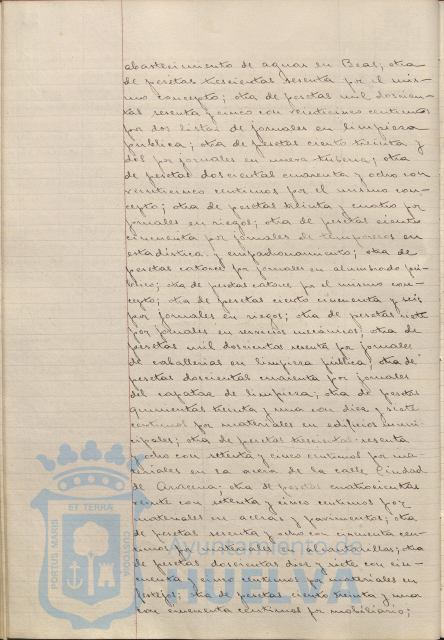 abastecimiento de aguas en Beas; otra
de pesetas trescientas sesenta por el mis-
mo concepto; otra de pesetas mil doscien-
tas sesenta y cinco con veinticinco centimos
por dos listas de jornales en limpieza
publica; otra de pesetas ciento treinta y
dos por jornales en nueva tuberia; otra
de pesetas doscientas cuarenta y ocho con
veinticinco centimos por el mismo con-
cepto; otra de pesetas treinta y cuatro por
jornales en riegos; otra de pesetas ciento
cincuenta por jornales de temporeros en
estadistica y empadronamiento; otra de
pesetas catorce por jornales en alumbrado pú-
blico; otra de pesetas catorce por el mismo con-
cepto; otra de pesetas ciento cincuenta y seis
por jornales en riegos; otra de pesetas siete
por jornales en servicios mecánicos; otra de
pesetas mil doscientas sesenta por jornales
de caballerias en limpieza pública; otra de
pesetas doscientas cuarenta por jornales
del capataz de limpieza; otra de pesetas
quinientas treinta y una con diez y siete
centimos por materiales en edificios muni-
cipales; otra de pesetas trescientas sesenta
y ocho con setenta y cinco centimos por ma-
teriales en la acera de la calle Ciudad
de Aracena; otra de pesetas cuatrocientas
veinte con setenta y cinco centimos por
materiales en aceras y pavimentos; otra
de pesetas sesenta y ocho con cincuenta cen-
timos por materiales en alcantarillas; otra
de pesetas doscientas diez y siete con cin-
cuenta y cinco centimos por materiales en
festejos; otra de pesetas ciento treinta y una
con cincuenta centimos por mobiliario;
PORTUS MARIS
ET TERRÆ
CUSTODIA
Ayuntamiento de
HUELVA